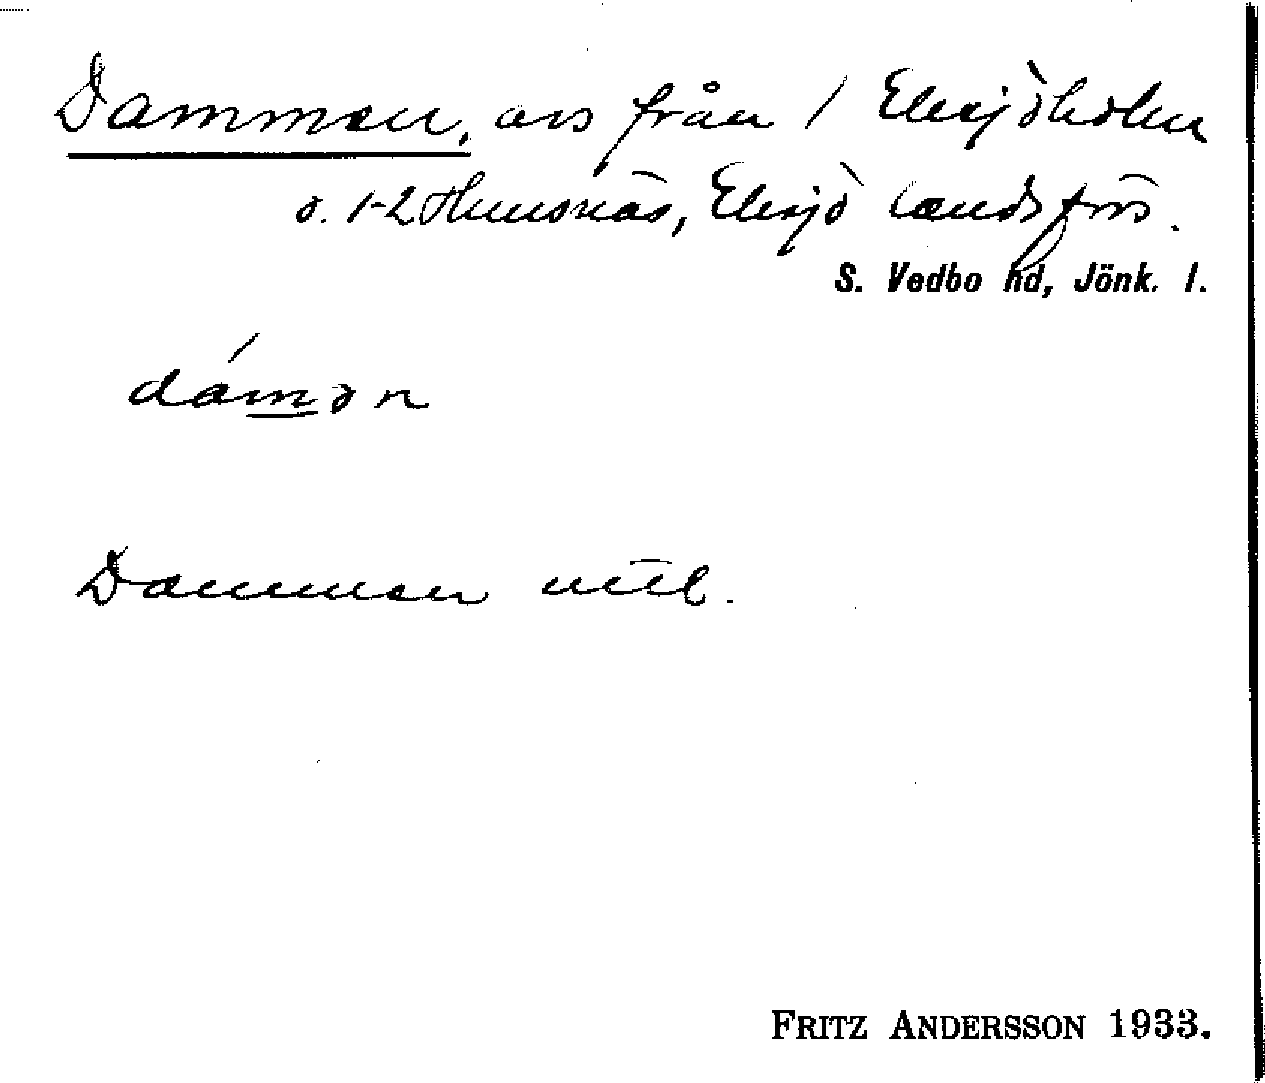 Dammen, avs från 1 Eksjöholm
o. 1-2 Hunsnäs, Eksjö landsförs.
S. Vedbo hd, Jönk. l.
dámən
Dammen mtl.
FRITZ ANDERSSON 1933.